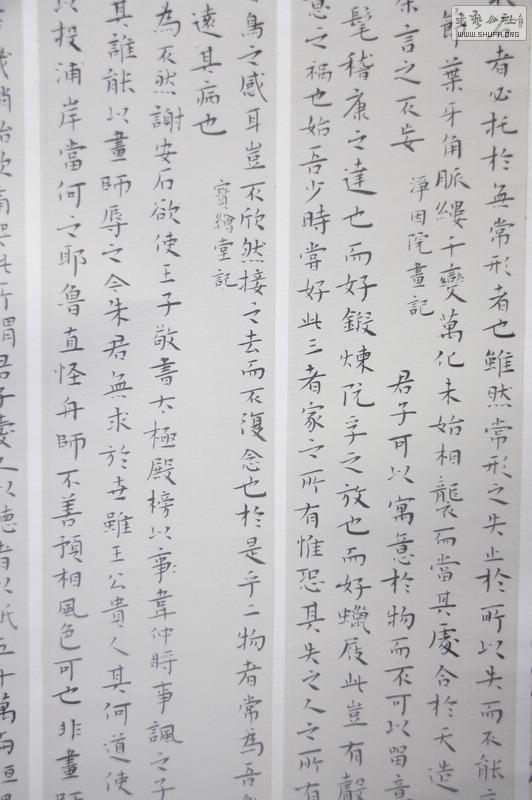 者必托於無常形者也雖然常形之失止於所以失而不能
節葉牙角脈縷千變萬化未始相襲而當其處合於天造
余言之不妄 淨因院畫記
君子可以寓意於物而不可以留意
髦嵇康之達也而好鍛煉阮孚之放也而好蠟屐此豈有聲
意之禍也始吾少時嘗好此三者家之所有惟恐其失之人之所有
鳥之感耳豈不欣然接之去而不復念也於是乎二物者常為吾
遠其病也 寶繪堂記
為不然謝安石欲使王子敬書太極殿榜以事韋仲將事諷之子
其誰能以畫師辱之今朱君無求於世雖王公貴人其何道使
以投浦岸當何之耶魯直怪舟師不善預相風色可也非畫師
所謂君子愛人以德者以紙五十萬
書藝公社
WWW.SHUFA.ORG